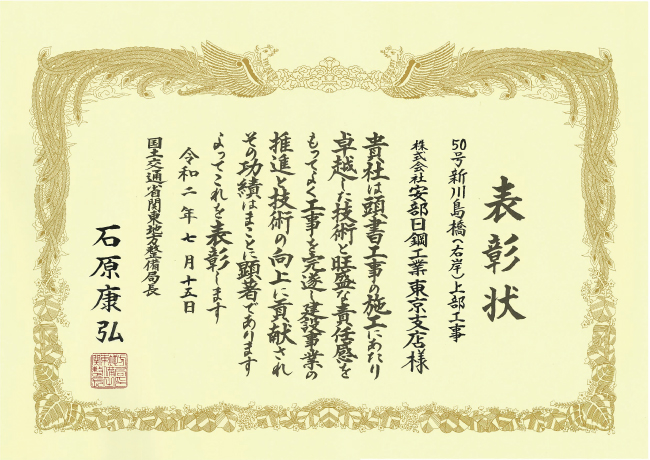 表彰状
50号新川島橋(右岸)上部工事
株式会社安部日鋼工業東京支店様
貴社は頭書工事の施工にあたり
卓越した技術と旺盛な責任感を
もってよく工事を完遂し建設事業の
推進と技術の向上に貢献され
その功績はまことに顕著であります
よってこれを表彰します
令和二年七月十五日
国土交通省関東地方整備局長
石原康弘